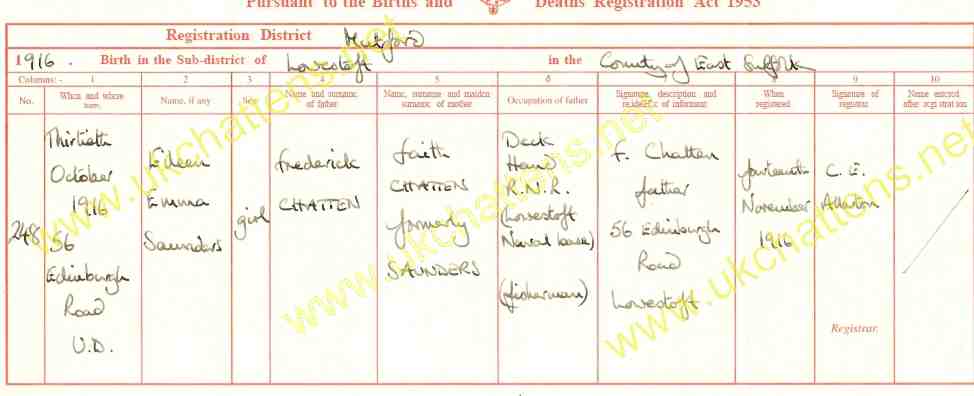 Pursuant to the Births and Deaths Registration Act 1953
Registration District Mutford
1916. Birth in the Sub-district of Lowestoft in the County of East Suffolk
Columns:- 1 2 3 4 5 6 7 8 9 10
No. When and where born. Name, if any Sex Name and surname of father Name, surname and maiden surname of mother Occupation of father Signature, description and residence of informant When registered Signature of registrar Name entered after registration
248 Thirtieth October 1916 56 Edinburgh Road U.D.
Eileen Emma Saunders
girl
Frederick CHATTEN
Faith CHATTEN formerly SAUNDERS
Deck Hand R.N.R. (Lowestoft Naval base) (fisherman)
F. Chatten father 56 Edinburgh Road Lowestoft
fourteenth November 1916
C. E. Allerton
Registrar.
www.ukchattens.net
www.ukchattens.net
www.ukchattens.net